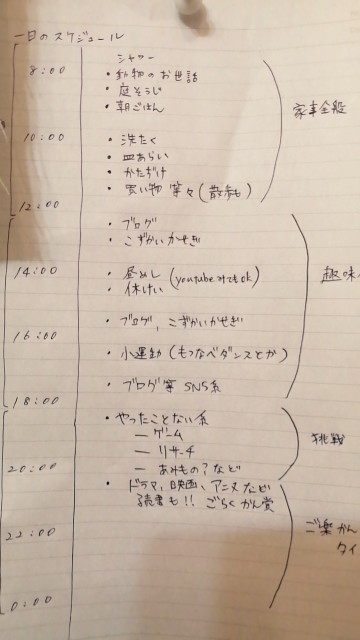 一日のスケジュール
シャワー
8:00 ・動物のお世話
・庭そうじ
・朝ごはん
家事全般
10:00 ・洗たく
・皿あらい
・かたずけ
・買い物 等々(散歩も)
12:00
・ブログ
・こずかいかせぎ
14:00 ・昼めし(youtubeみてもok)
・休けい
趣味
・ブログ、こずかいかせぎ
16:00
・小運動(もつなべダンスとか)
・ブログ等 SNS系
18:00
・やったことない系
―ゲーム
挑戦
―リサーチ
20:00 ―あみもの?など
・ドラマ、映画、アニメなど
読書も!! ごらくかん賞
22:00
ご楽かん
タイ
0:00